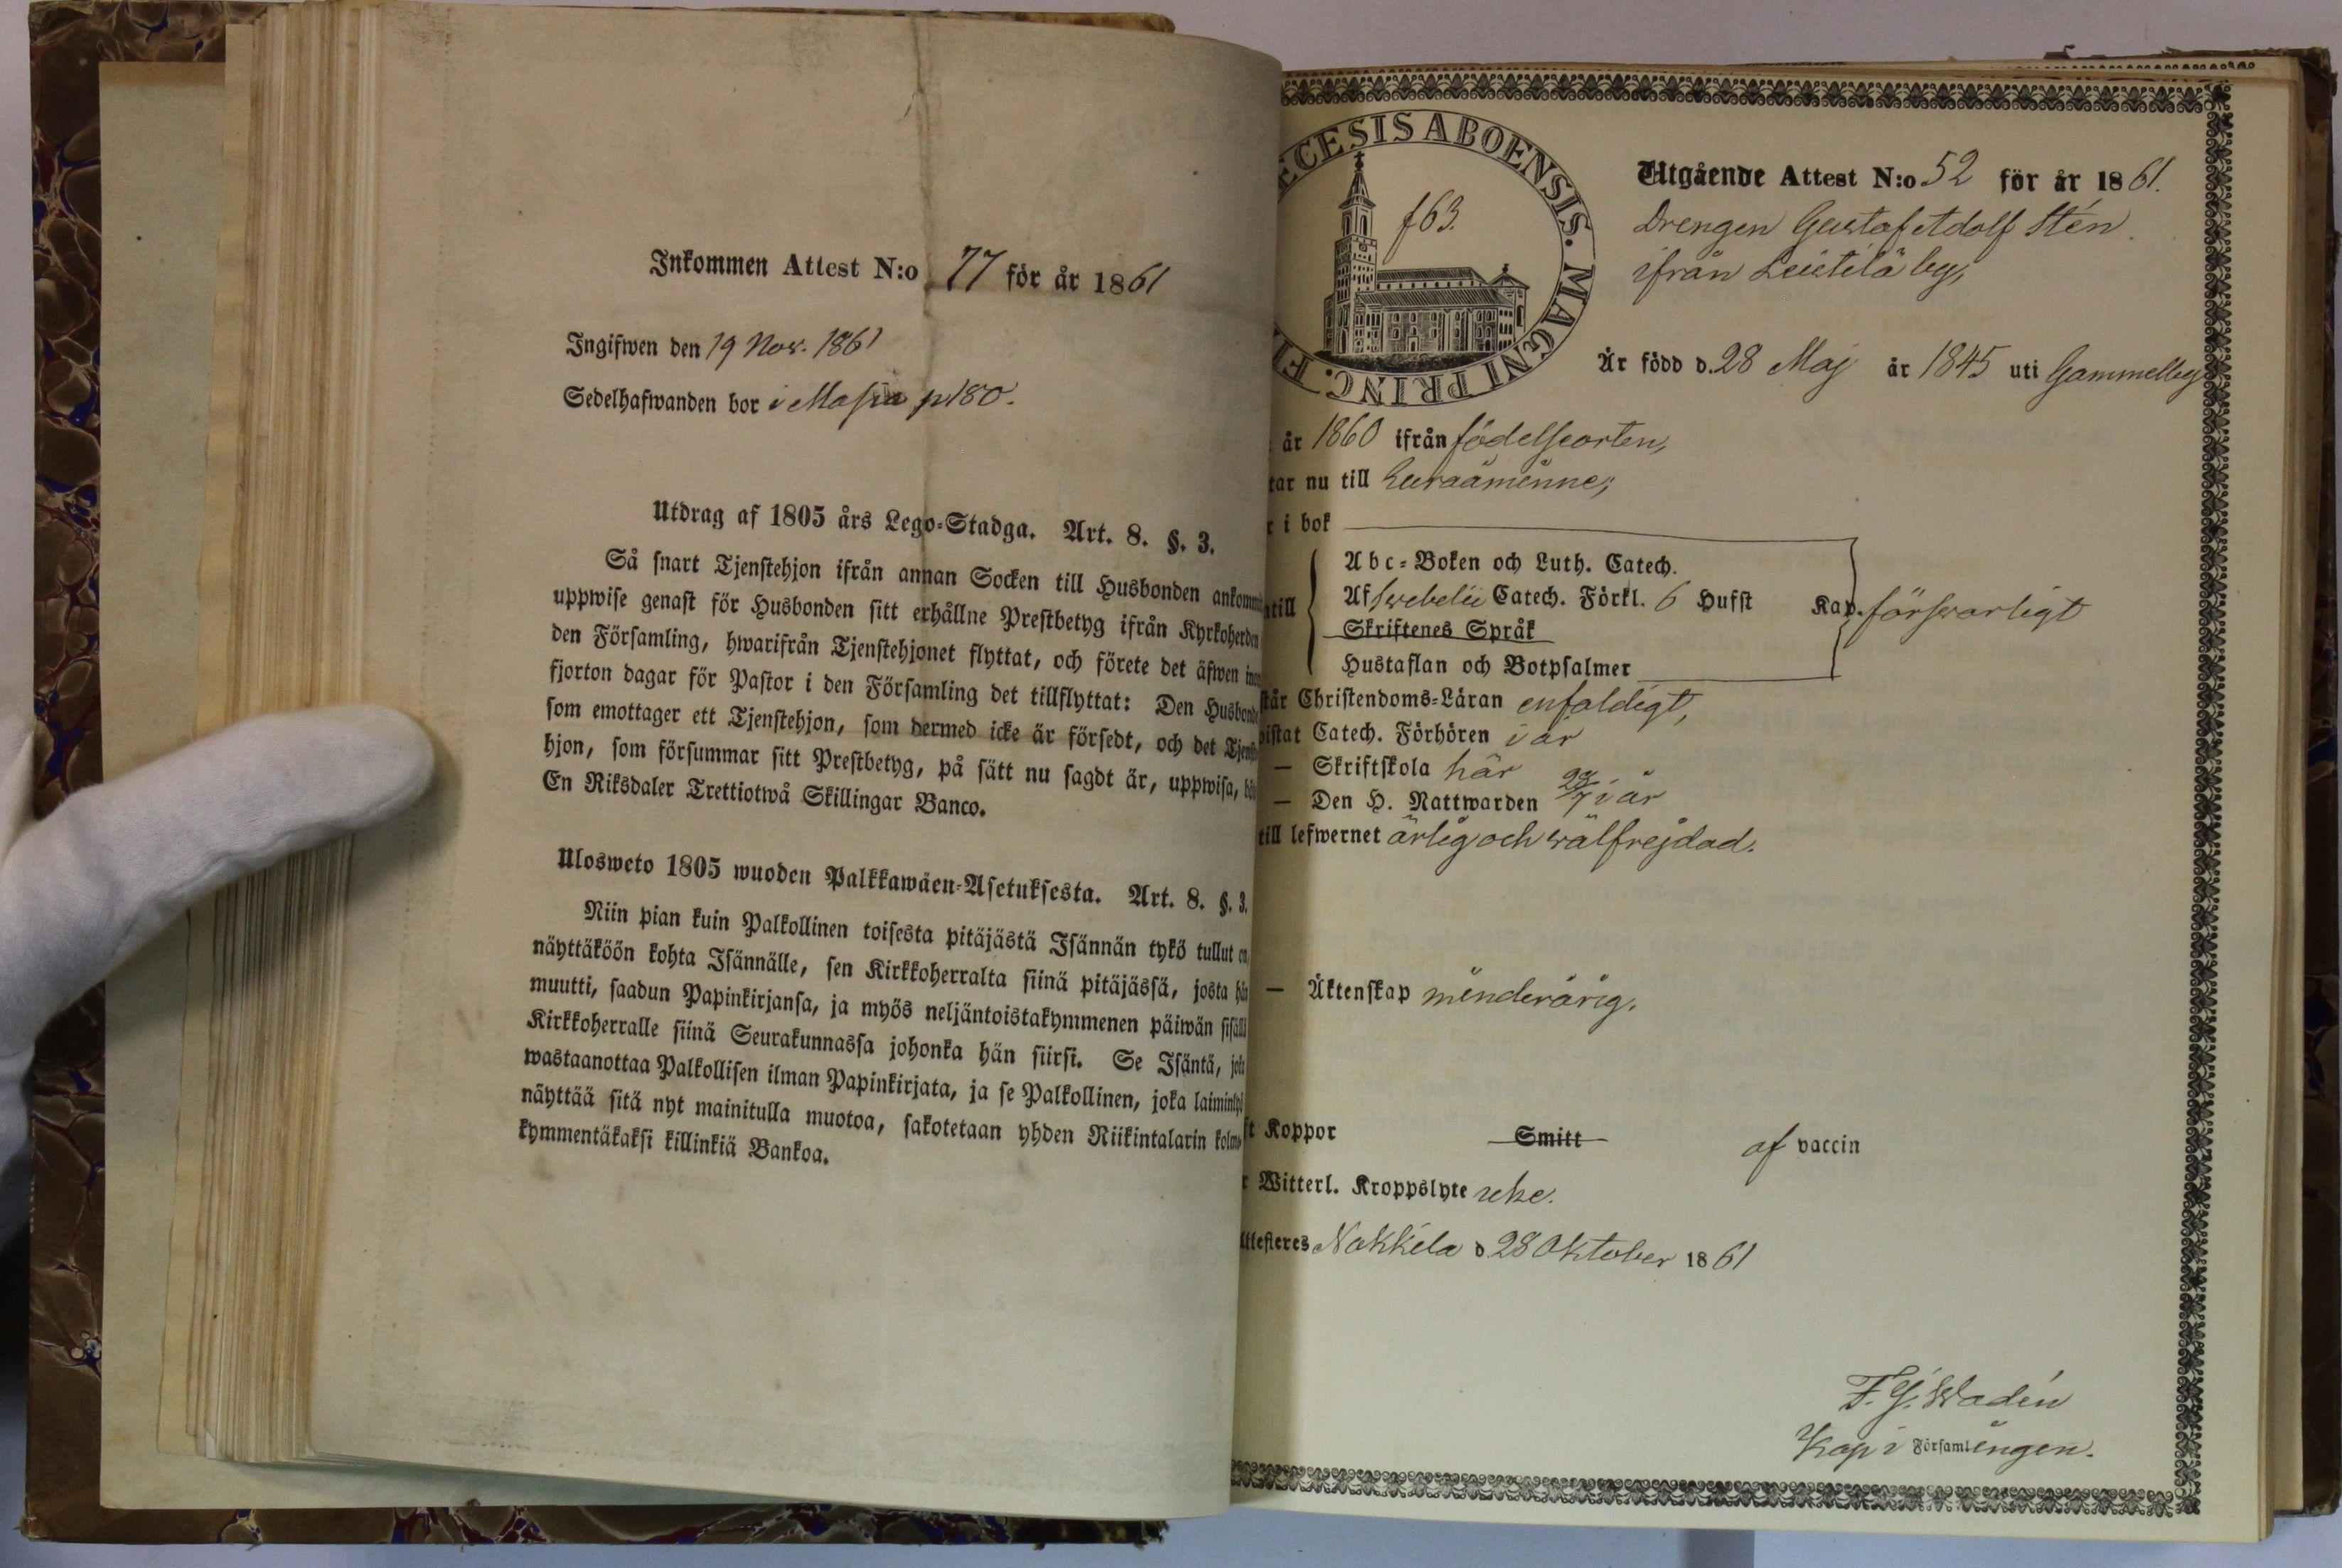 Inkommen Attest N:o 77 för år 1861
Ingifwen den 19 Nov. 1861
Sedelhafwanden bor i Massia p 180.
Utdrag af 1805 års Lego-Stadga. Art. 8. §. 3.
Så snart Tjenstehjon ifrån annan Socken till Husbonden ankomm
uppwise genast för Husbonden sitt erhållne Prestbetyg ifrån Kyrkoherden
den Församling, hwarifrån Tjenstehjonet flyttat, och förete det äfwen in
fjorton dagar för Pastor i den Församling det tillflyttat: Den Husbonde
som emottager ett Tjenstehjon, som dermed icke är försedt, och det Tjenst
hjon, som försummar sitt Prestbetyg, på sätt nu sagdt är, uppwisa, bö
En Riksdaler Trettiotwå Skillingar Banco.
Ulosweto 1805 wuoden Palkkawäen-Asetuksesta. Art. 8. §. 3.
Niin pian kuin Palkollinen toisesta pitäjästä Isännän tykö tullut on
näyttäköön kohta Isännälle, sen Kirkkoherralta siinä pitäjässä, josta hän
muutti, saadun Papinkirjansa, ja myös neljäntoistakymmenen päiwän sisällä
Kirkkoherralle siinä Seurakunnassa johonka hän siirsi. Se Isäntä, joka
wastaanottaa Palkollisen ilman Papinkirjata, ja se Palkollinen, joka laiminlyö
näyttää sitä nyt mainitulla muotoa, sakotetaan yhden Riikintalarin kolme
kymmentäkaksi killinkiä Bankoa.
ECESIS ABOENSIS. MAGNI PRINC. FI
f 63.
Utgående Attest N:o 52 för år 1861.
Drengen Gustaf Adolf Stén
ifrån Leistilä by,
Är född d. 28 Maj år 1845 uti Gammelby
år 1860 ifrån födelseorten,
tar nu till Euraåminne;
r i bok
Abc-Boken och Luth. Catech.
ntill Af Svebelii Catech. Förkl. 6 Hufst Kap. försvarligt
Skriftenes Språk
Hustaflan och Botpsalmer
står Christendoms-Läran enfaldigt,
bistat Catech. Förhören i år
— Skriftskola här
— Den H. Nattwarden 28/7 i år
till lefwernet ärlig och välfrejdad.
— Äktenskap minderårig.
st Koppor Smitt af vaccin
r Witterl. Kroppslyte icke.
Attesteres Nakkila d 28 Oktober 1861
F. G. Wadén
Kap i Församlingen.